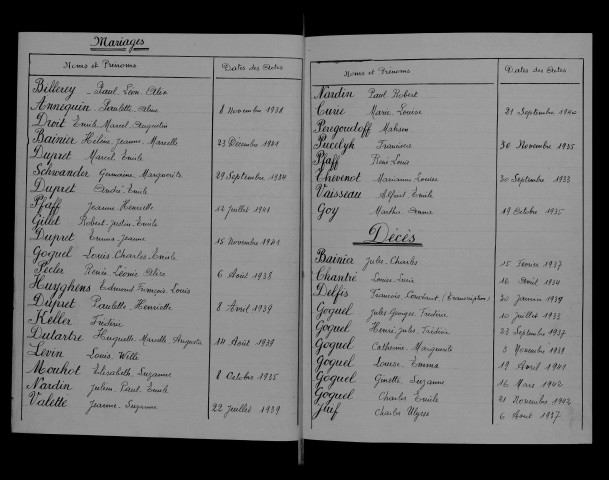 Mariages
Noms et Prénoms Dates des Actes
Billerey Paul Léon Alix
Annequin Paulette Aline 8 Novembre 1938
Droit Emile Marcel Augustin
Bainier Hélène Jeanne Marcelle 23 Décembre 1941
Dupret Marcel Emile
Schwander Germaine Marguerite 29 Septembre 1934
Dupret André Emile
Pfaff Jeanne Henriette 12 Juillet 1941
Gillet Robert Justin Emile
Dupret Emma Jeanne 15 Novembre 1941
Goguel Louis Charles Emile
Pecler Renée Léonie Alice 6 Août 1938
Huyghens Edmond François Louis
Dupret Paulette Henriette 8 Avril 1939
Keller Frédéric
Dutartre Huguette Marcelle Augusta 14 Août 1939
Levin Louis Willy
Mouhot Elisabeth Suzanne 8 Octobre 1935
Nardin Julien Paul Emile
Valette Jeanne Suzanne 22 Juillet 1939
Noms et Prénoms Dates des Actes
Nardin Paul Robert
Curie Marie Louise 21 Septembre 1940
Peregoudoff Maksen
Pucelyk Francisca 30 Novembre 1935
Pfaff René Louis
Chevenot Marianne Louise 30 Septembre 1933
Vaisseau Alfred Emile
Goy Marthe Anna 19 Octobre 1935
Décès
Bainier Jules Charles 15 Février 1937
Chantre Louise Lucie 16 Août 1934
Delfis François Constant (Transcription) 20 Janvier 1939
Goguel Jules Georges Frédéric 10 Juillet 1933
Goguel Henri Jules Frédéric 23 Septembre 1937
Goguel Catherine Marguerite 3 Novembre 1939
Goguel Louise Emma 19 Avril 1941
Goguel Ginette Suzanne 16 Mars 1942
Goguel Charles Emile 21 Novembre 1942
Juif Charles Ulysse 6 Août 1937